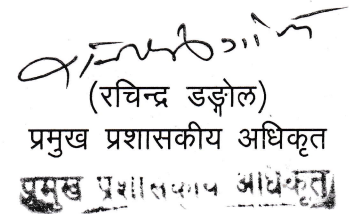 (रचिन्द्र डङ्गोल)
प्रमुख प्रशासकीय अधिकृत
प्रमुख प्रशासकीय अधिकृत